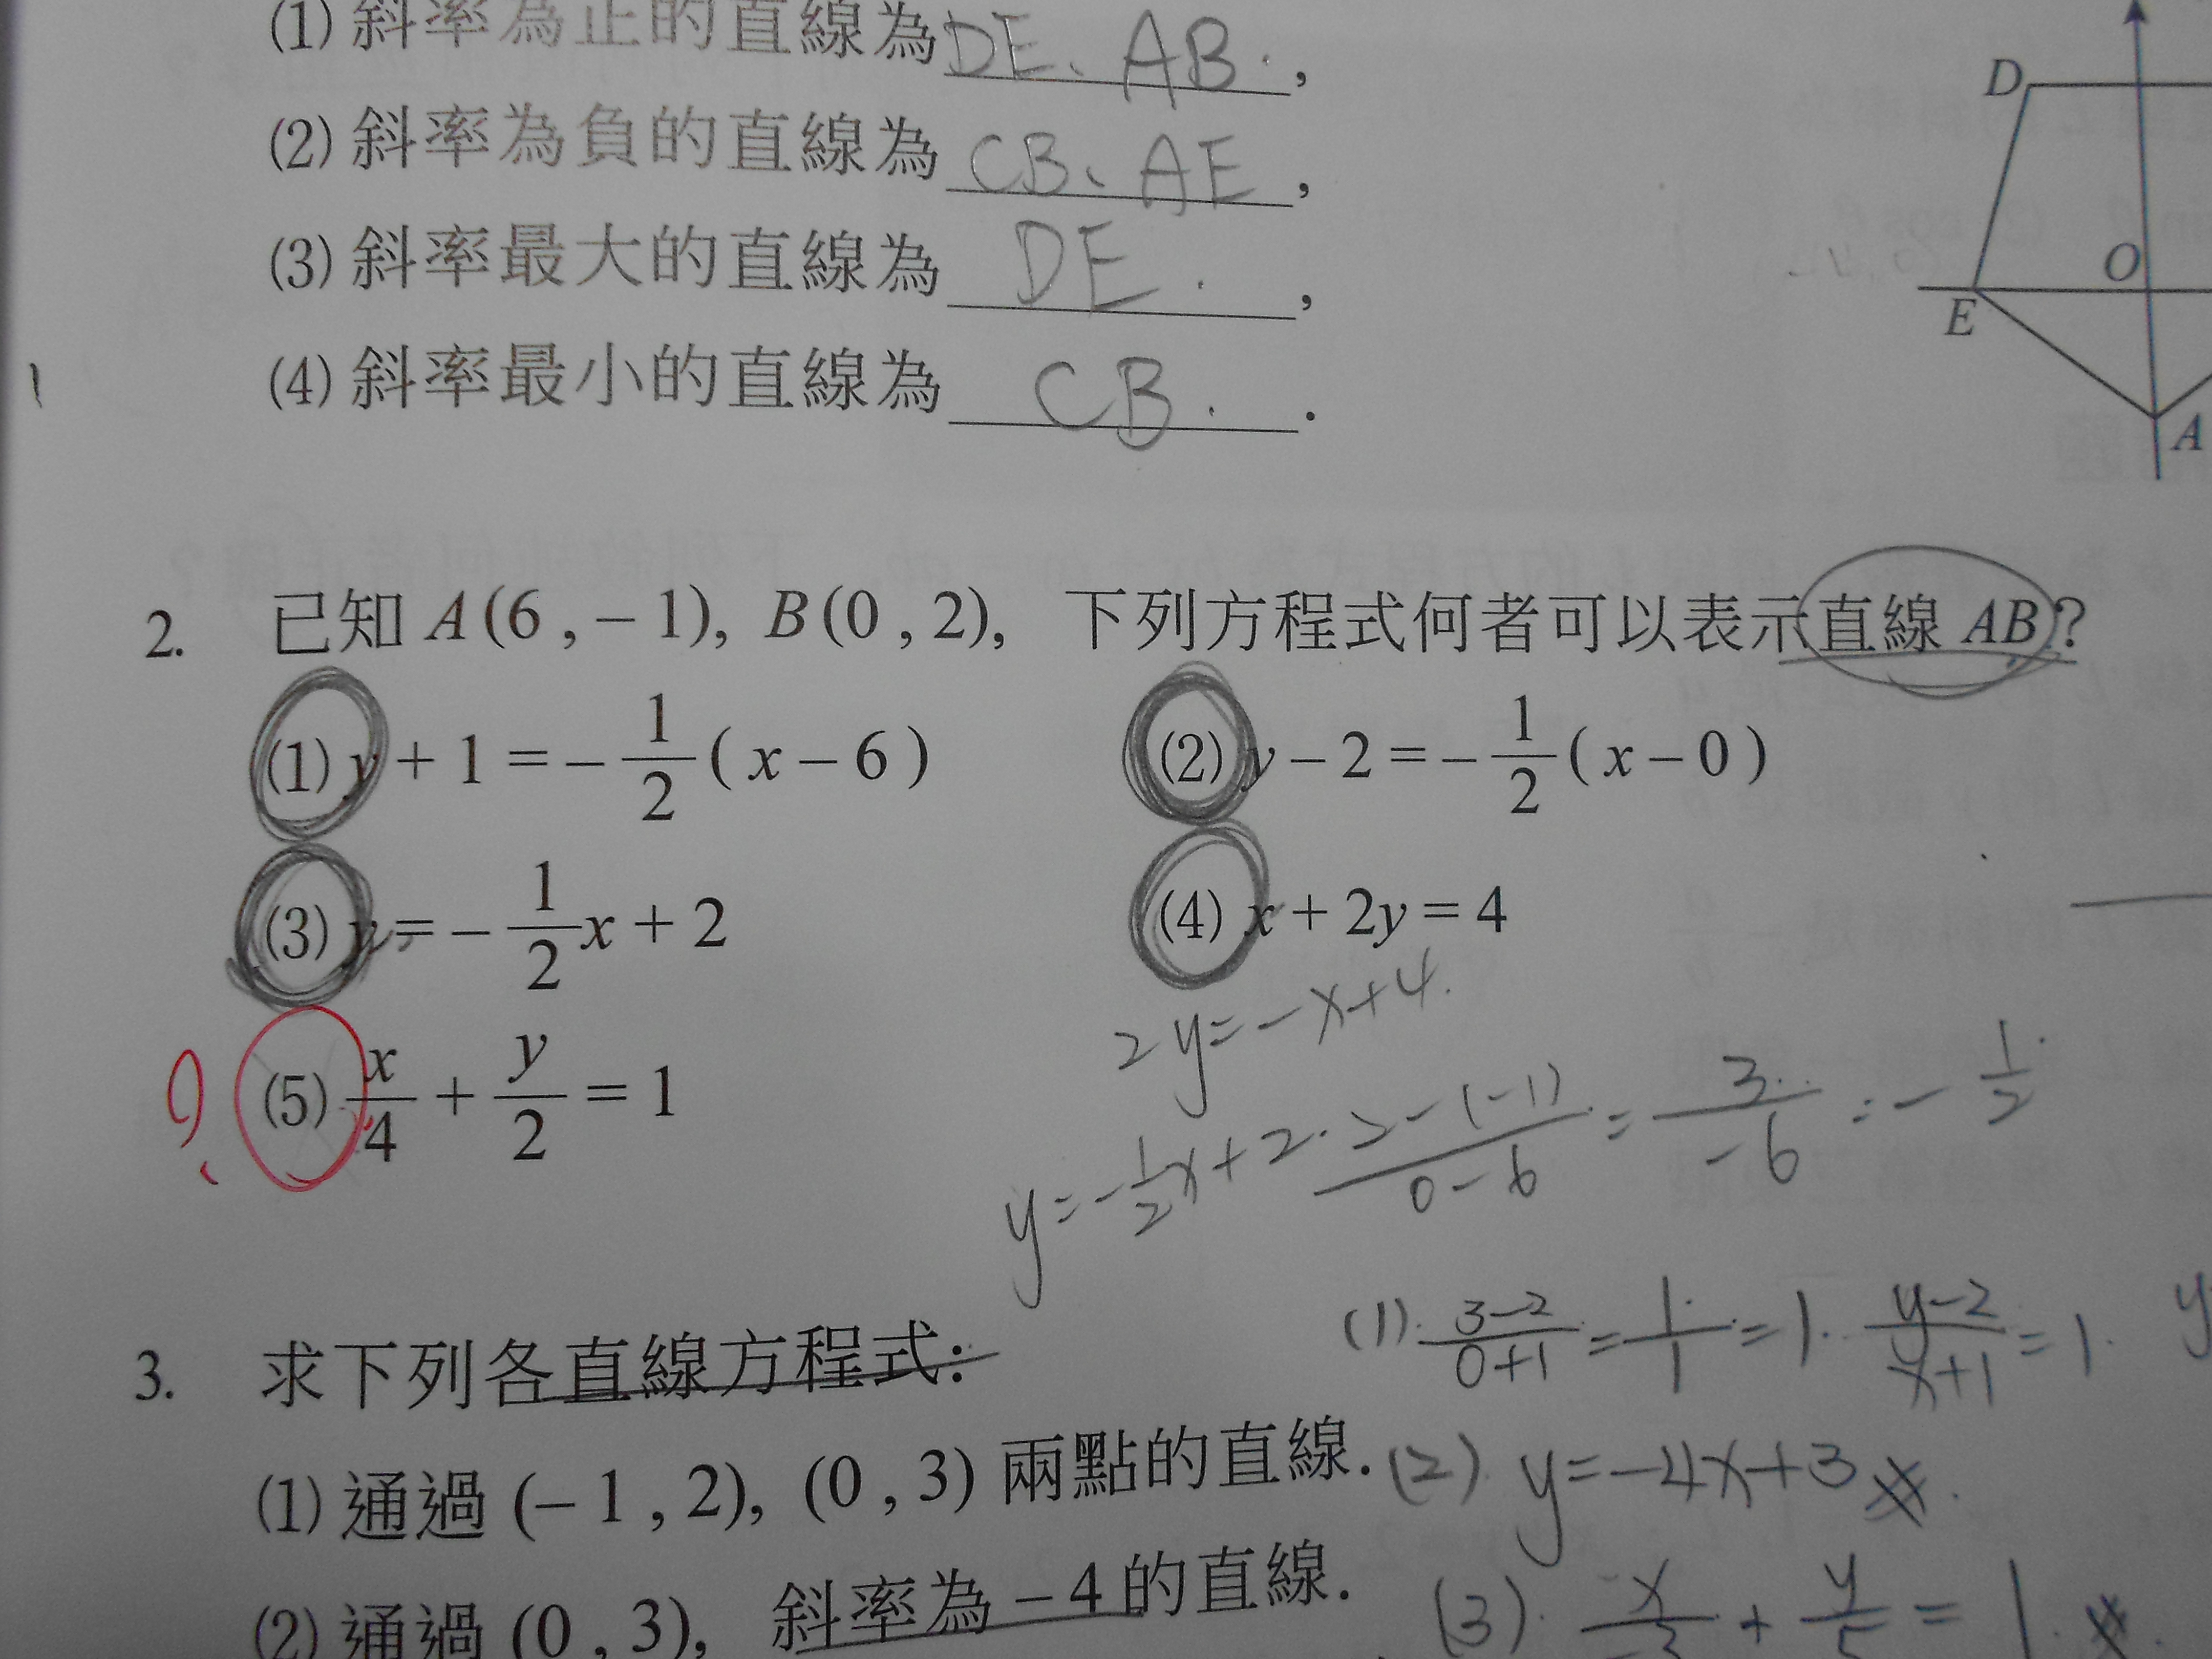 (1) 斜率為正的直線為 DE、AB. ,
(2) 斜率為負的直線為 CB、AE ,
(3) 斜率最大的直線為 DE. ,
(4) 斜率最小的直線為 CB. .
D
O
E
A
2. 已知 A(6 , – 1), B(0 , 2), 下列方程式何者可以表示直線 AB?
(1) y + 1 = – 1/2 ( x – 6 ) (2) y – 2 = – 1/2 ( x – 0 )
(3) y = – 1/2 x + 2 (4) x + 2y = 4
2y = -x+4.
(5) x/4 + y/2 = 1
y = -1/2 x + 2. 2-(-1)/0-6 = 3/-6 = -1/2
3. 求下列各直線方程式:
(1). 3-2/0+1 = 1/1 = 1. y-2/x+1 = 1. y
(1) 通過 (– 1 , 2), (0 , 3) 兩點的直線.
(2) y = -4x+3
(2) 通過 (0 , 3), 斜率為 – 4 的直線.
(3). x/-3 + y/5 = 1.